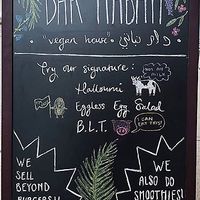 DAR NABATI
"vegan house" دار نباتي
Try our signature:
Halloumi
NOT MY MILK
Eggless Egg Salad
B.L.T.
I CAN EAT THIS!
WE
SELL
BEYOND
BURGERS!!
WE
ALSO DO
SMOOTHIES!